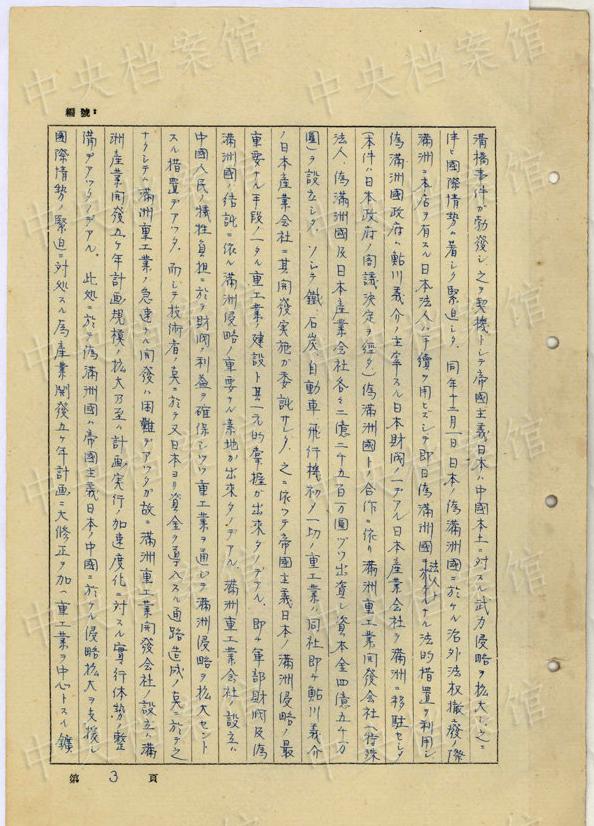 編號:
溝橋事件が勃発シ之ヲ契機トシテ帝国主義日本ハ中國本土ニ対スル武力侵略ヲ拡大シ之ニ
伴ヒ國際情勢ハ著シク緊迫シタ 同年十二月一日日本ノ偽満洲國ニ於ケル治外法权撤廢ノ際
満洲ニ本店ヲ有スル日本法人ハ手續ヲ用ヒズシテ即日偽満洲國法人トナル法的措置ヲ利用シ
偽満洲國政府ハ鮎川義介ノ主宰スル日本財閥ノ一デアル日本産業会社ヲ満洲ニ移駐セシメ
(本件ハ日本政府ノ閣議決定ヲ經タ)偽満洲國トノ合作ニ依リ満洲重工業開發会社(特殊
法人、偽満洲國及日本産業会社各々二億二千五百万圓ヅツ出資シ資本金四億五千万
圓)ヲ設立シタ、ソシテ鐵、石炭、自動車、飛行機初メ一切ノ重工業ハ同社即チ鮎川義介
ノ日本産業会社ニ其ノ開發実施が委託サレタ、之ニ依ツテ帝國主義日本ノ満洲侵略ノ最
重要ナル手段ノ一タル重工業ノ建設ト其ノ一元的掌握が出来タノデアル、即チ軍部財閥及偽
満洲國ノ結託ニ依ル満洲侵略ノ重要ナル素地が出来タノデアル、満洲重工業会社ノ設立ハ
中國人民ノ犠牲負担ニ於テ財閥利益ヲ確保シツツ重工業ヲ通シテ満洲侵略ヲ拡大セント
スル措置デアツタ、而シテ技術者ノ莫ニ於テ又日本ヨリ資金ヲ導入スル通路造成ノ莫ニ於テ之
ナクシテハ満洲重工業ノ急速ナル開發ハ困難デアツタが故ニ満洲重工業開發会社ノ設立ハ満
洲産業開發五ケ年計画規模ノ拡大乃至ハ計画実行ノ加速度化ニ対スル實行体勢ノ整
備デアツタノデアル、 此処ニ於テ偽満洲國ハ帝國主義日本ノ中國ニ於ケル侵略拡大ヲ支援シ
國際情勢ノ緊迫ニ対処スル為産業開發五ケ年計画ニ大修正ヲ加ヘ重工業ヲ中心トスル鑛
第 3 頁
中央档案馆